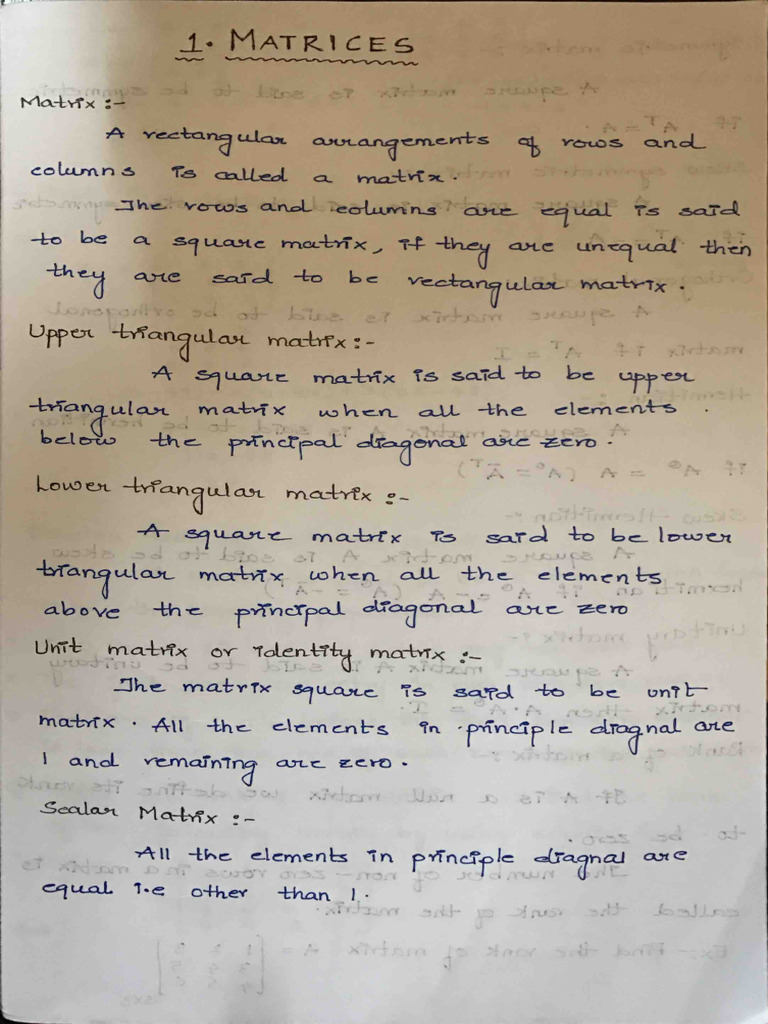 1. MATRICES
Matrix :-
A rectangular arrangements of rows and
columns is called a matrix.
The rows and columns are equal is said
to be a square matrix, if they are unequal then
they are said to be rectangular matrix.
Upper triangular matrix :-
A square matrix is said to be upper
triangular matrix when all the elements
below the principal diagonal are zero.
Lower triangular matrix :-
A square matrix is said to be lower
triangular matrix when all the elements
above the principal diagonal are zero
Unit matrix or identity matrix :-
The matrix square is said to be unit
matrix. All the elements in principle diagnal are
1 and remaining are zero.
Scalar Matrix :-
All the elements in principle diagnal are
equal i.e other than 1.